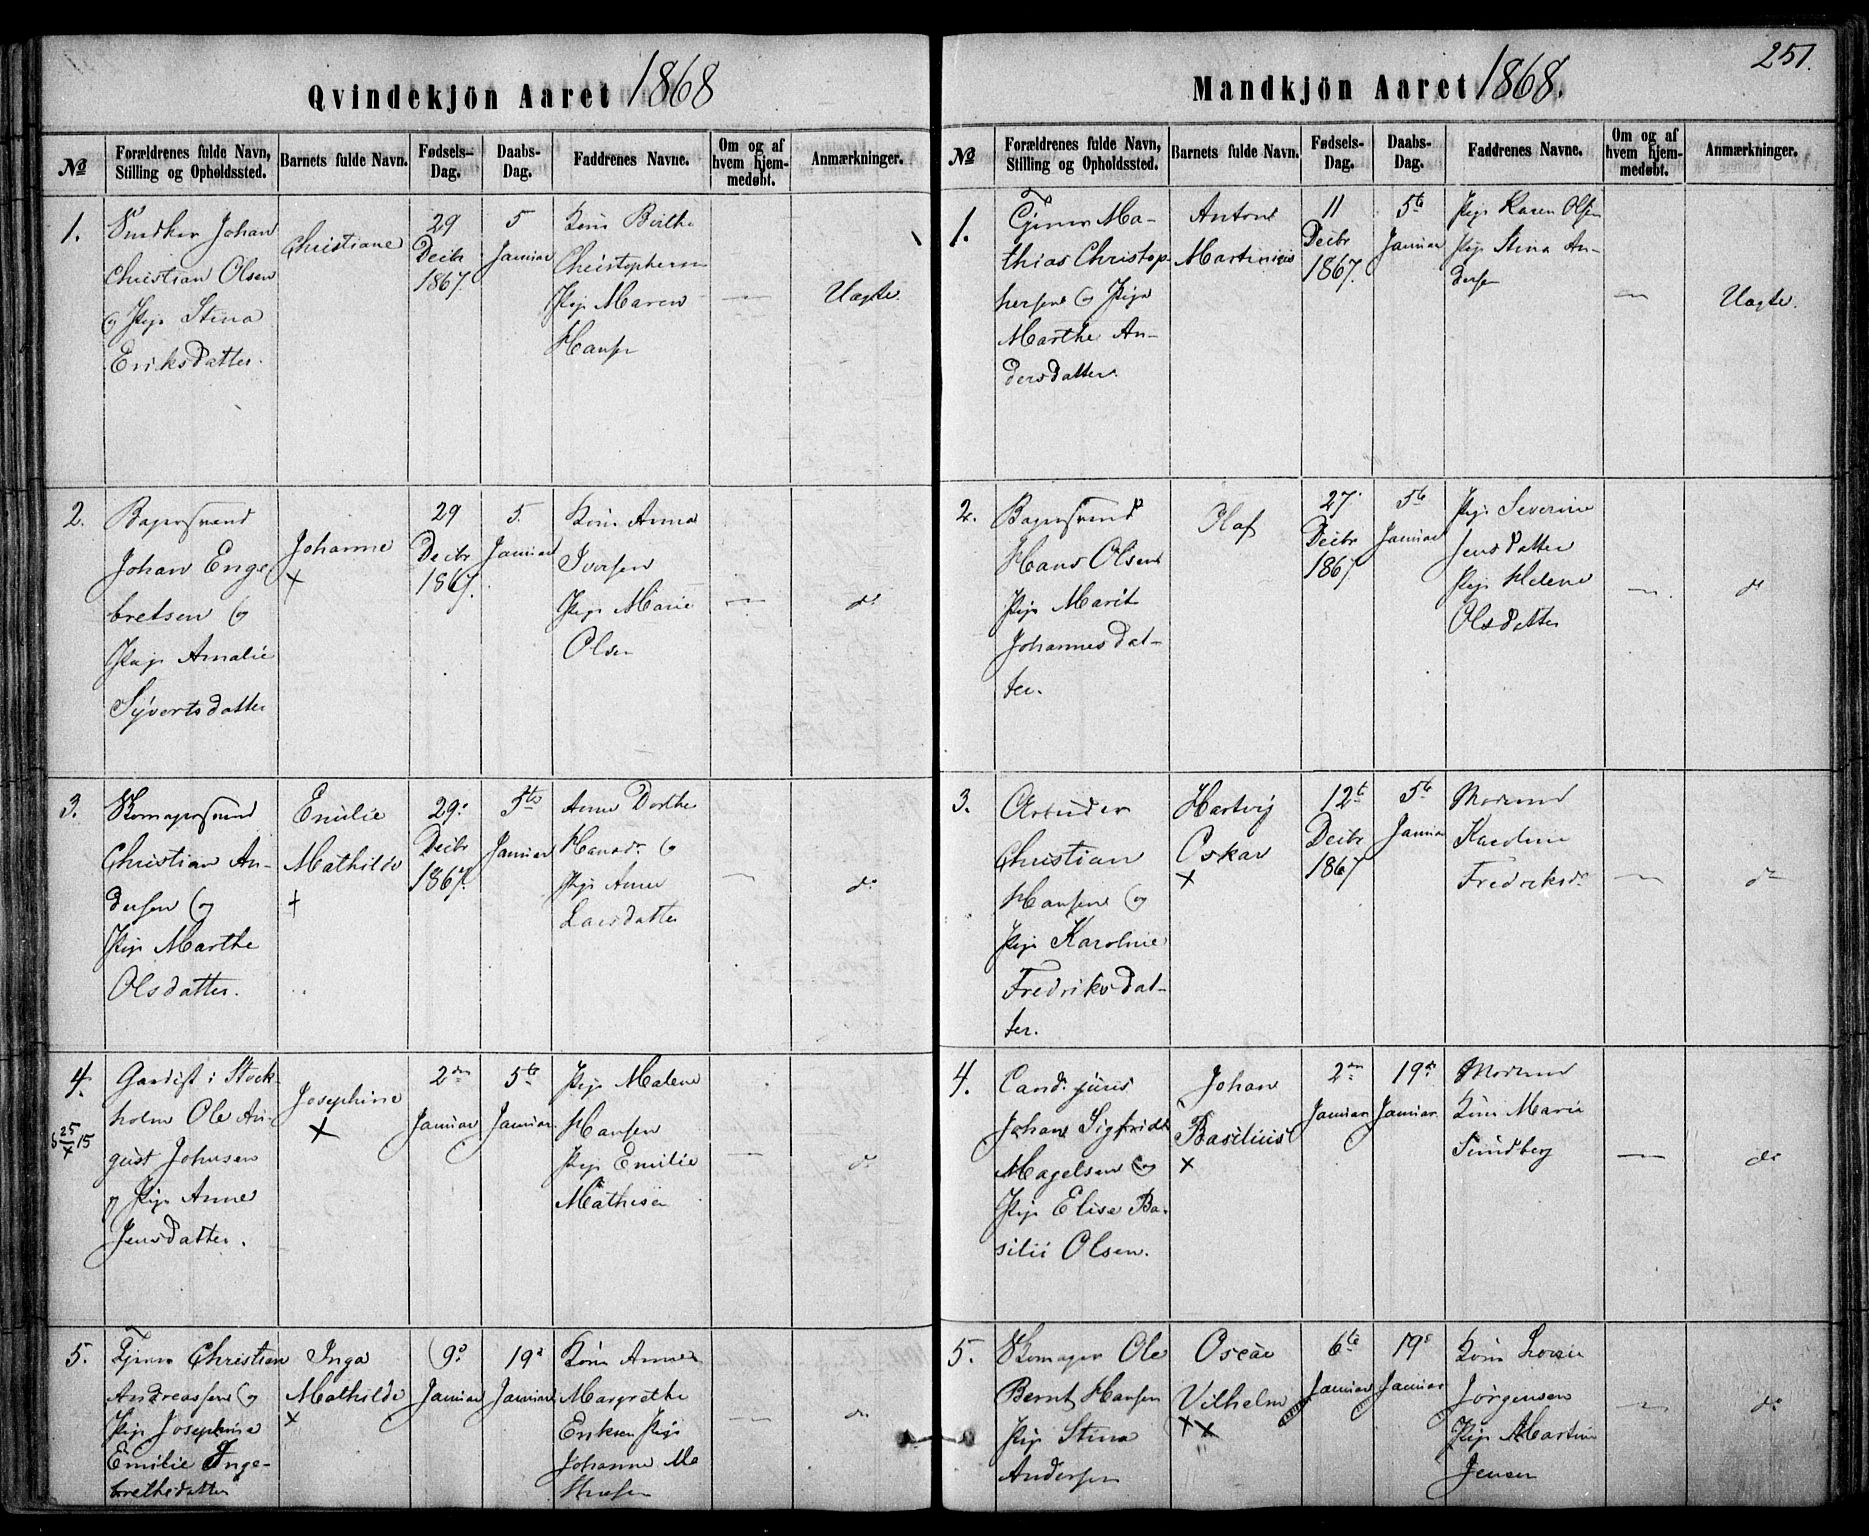 Qvindekjön Aaret 1868
№
Forældrenes fulde Navn, Stilling og Opholdssted.
Barnets fulde Navn.
Fødsels-Dag.
Daabs-Dag.
Faddrenes Navne.
Om og af hvem hjemmedøbt.
Anmærkninger.
1.
Snedker Johan
Christian Olsen
og Pige Stina
Eriksdatter.
Christiane
29
Decbr
1867
5
Januar
Kone Berthe
Pige Maren
Hansen
—
Uægte.
2.
Bagersvend
Johan Enge
bretsen og
Pige Amalie
Syvertsdatter
Johanne
×
29
Decbr
1867.
5.
Januar
Kone Anna
Iversen
Pige Marie
Olsen
—
do
3.
Skomagersvend
Christian An-
dersen og
Pige Marthe
Olsdatter.
Emilie
Mathilde
+
29.
Decbr
1867.
5te
Januar
Anne Dorthe
Hansdr og
Pige Anne
Larsdatter
—
do
4.
Gardist i Stock-
holm Ole Au-
gust Johnsen
og Pige Anne
Jensdatter.
Josephine
×
2den
Januar
5te
Januar
Pige Malene
Hansen
Pige Emilie
Mathisen
—
do
5.
Tjener Christian
Andreassen og
Pige Josephine
Emilie Inge-
brethsdatter
Inga
Mathilde
×
9de
Januar
19de
Januar
Kone Anne
Margrethe
Eriksen Pige
Johanne Ma
thiesen
—
do
251.
Mandkjön Aaret 1868.
№
Forældrenes fulde Navn, Stilling og Opholdssted.
Barnets fulde Navn.
Fødsels-Dag.
Daabs-Dag.
Faddrenes Navne.
Om og af hvem hjemmedøbt.
Anmærkninger.
1.
Tjener Ma-
thias Christop-
hersen og Pige
Marthe An-
dersdatter.
Anton
Martinius
11
Decbr
1867.
5te
Januar
Pige Karen Olsen
Pige Stina An-
dersen
—
Uægte.
2.
Bagersvend
Hans Olsen
Pige Marit
Johannesdat-
ter.
Olaf
27
Decbr
1867
5te
Januar
Pige Severine
Jensdatter
Pige Helene
Olsdatter
—
do
3.
Arbeider
Christian
Hansen og
Pige Karoline
Fredriksdat-
ter.
Hartvig
Oskar
×
12te
Decbr
1867
5te
Januar
Moderen
Karoline
Fredriksdr
—
do
4.
Cand. juris
Johan Sigfridt
Magelsen og
Pige Elise Ba-
silii Olsen.
Johan
Basilius
×
2den
Januar
19de
Januar.
Moderen
Kone Marie
Sundberg
—
do
5.
Skomager Ole
Bernt Hansen
Pige Stina
Andersen
Oscar
Vilhelm
××
6te
Januar
19de
Januar
Kone Lovise
Jørgensen
Pige Martine
Jensen
—
do